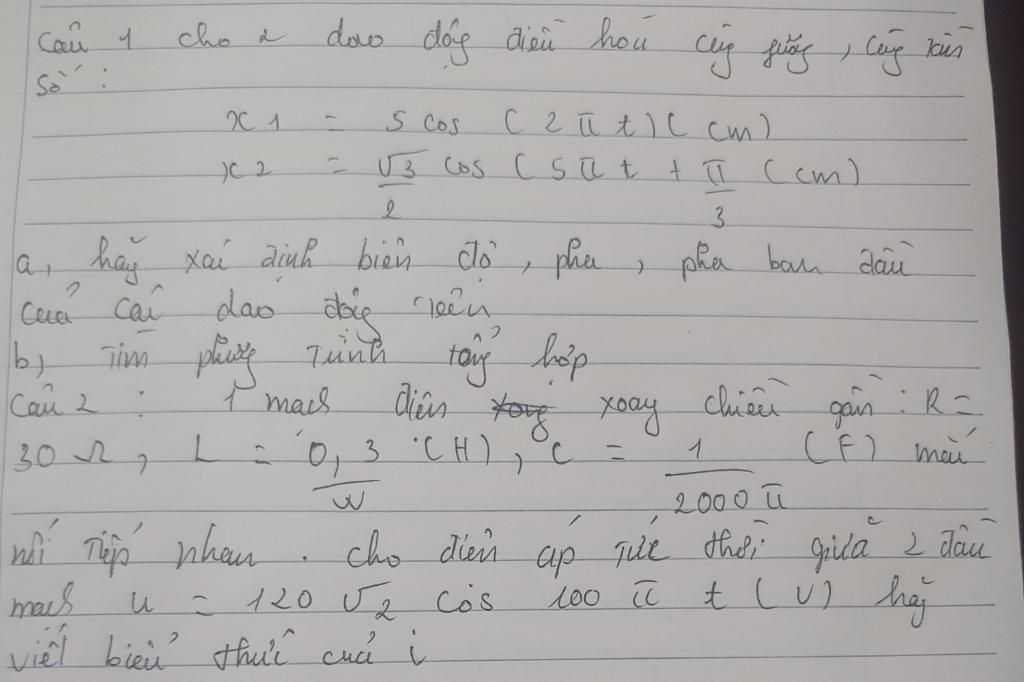 Câu 1 cho 2 dao động điều hòa cùng phương, cùng tần
số :
x1 = 5 cos (2πt)(cm)
x2 = √3/2 cos (5πt + π/3 (cm)
a, hãy xác định biên độ, pha, pha ban đầu
của các dao động trên
b) Tìm phương Trình tổng hợp
Câu 2 : 1 mạch điện xoay chiều gồm : R =
30 Ω, L = 0,3/W (H), C = 1/2000π (F) mắc
nối Tiếp nhau. Cho điện áp Tức thời giữa 2 đầu
mạch u = 120√2 cos 100πt (V) hãy
viết biểu thức của i